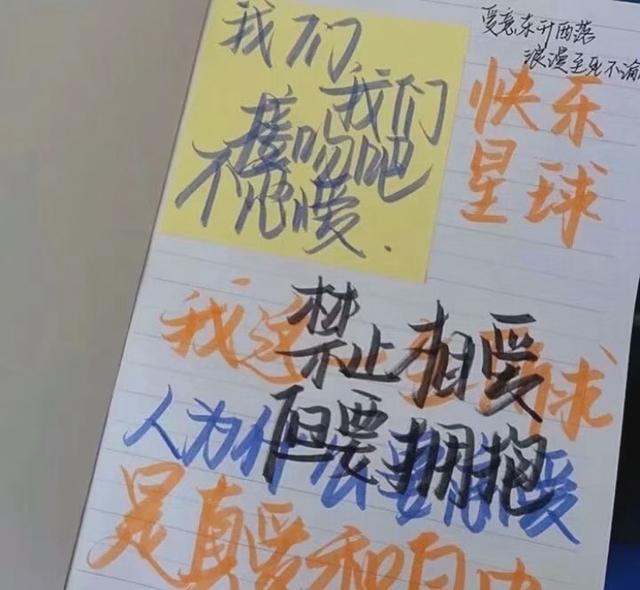 爱意东升西落
浪漫至死不渝
我们
我们
接吻吧
不恋爱.
快乐
星球
我这
求
禁止相爱
人为什么要爱
但要拥抱
是真爱和自由